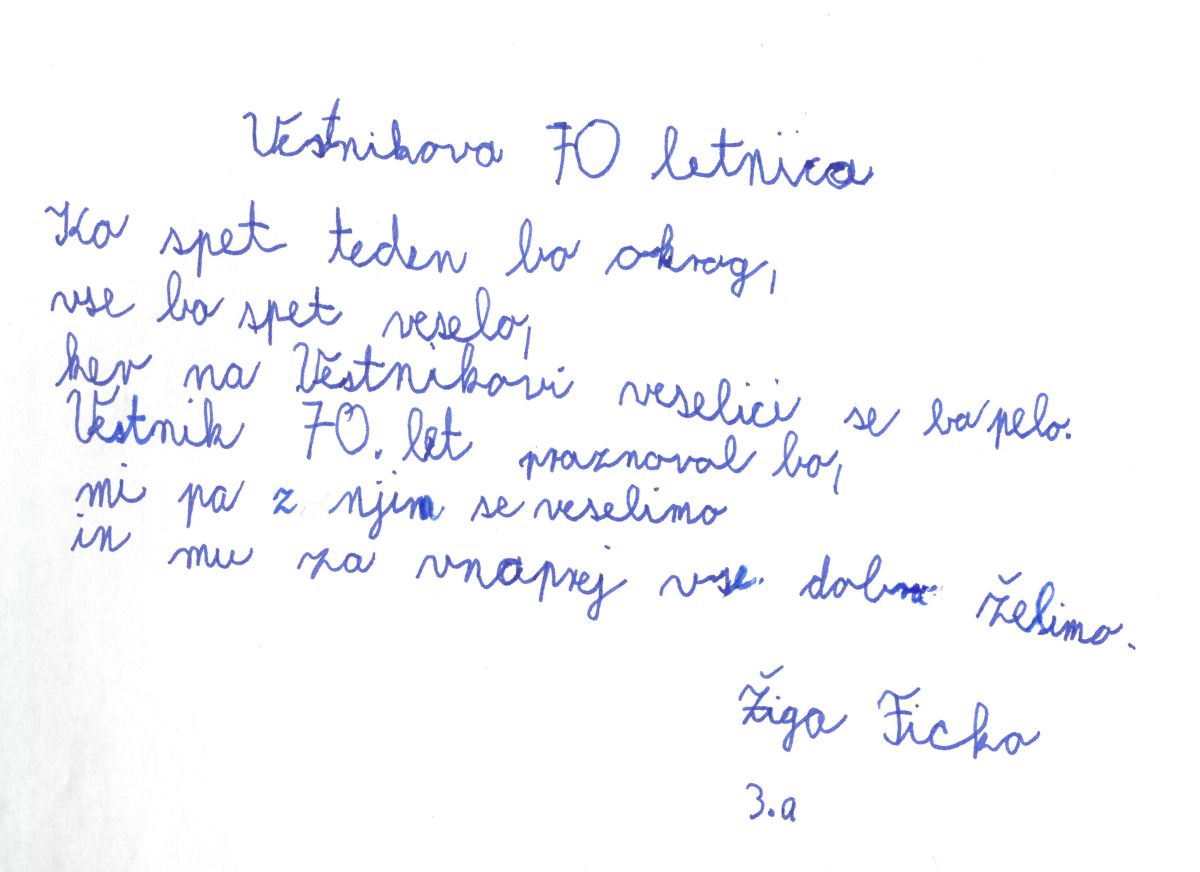 Vestnikova 70 letnica
Ko spet teden bo okrog,
vse bo spet veselo,
ker na Vestnikovi veselici se bo pelo.
Vestnik 70. let praznoval bo,
mi pa z njim se veselimo
in mu za vnaprej vse dobro želimo.
Žiga Ficko
3.a